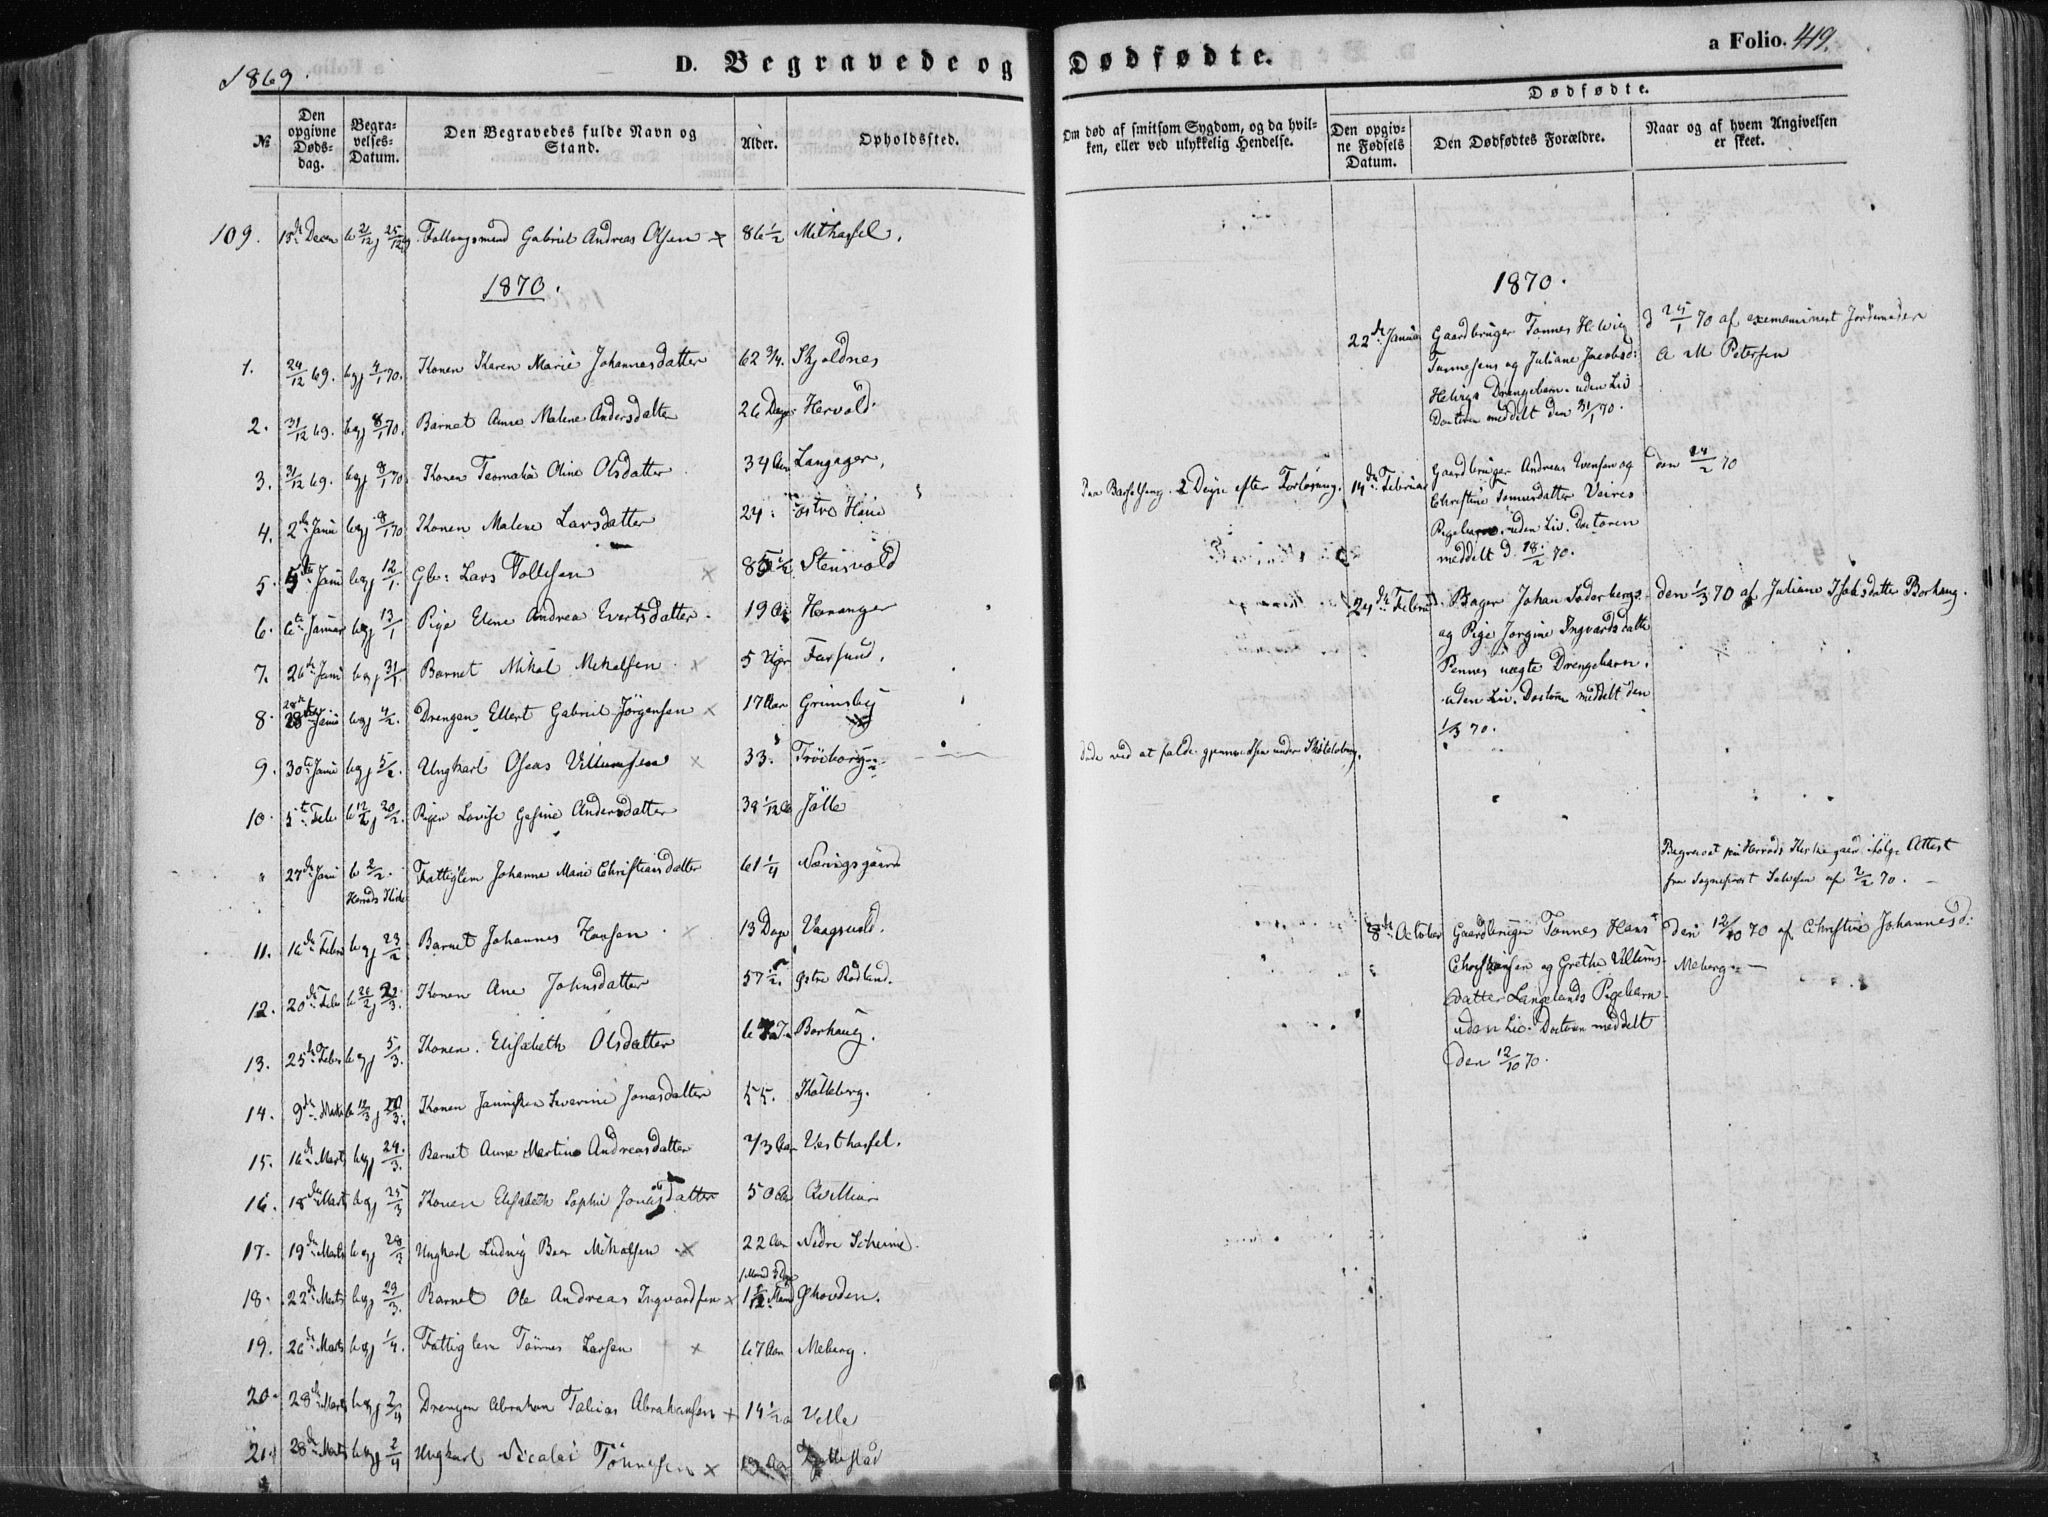 1869.
D. Begravede og Dødfødte.
a Folio. 419.
№
Den opgivne Døds-dag.
Begra-velses-Datum.
Den Begravedes fulde Navn og Stand.
Alder.
Opholdssted.
Om død af smitsom Sygdom, og da hvil-ken, eller ved ulykkelig Hendelse.
Dødfødte.
Den opgiv-ne Fødsels Datum.
Den Dødfødtes Forældre.
Naar og af hvem Angivelsen er skeet.
109. 15de Decem b 21/12 j 25/12 Gabriel Andreas Olsen x 86 1/2 Mithassel.
1870.
1. 24/12 69. b og j 4/1 70. Konen Karen Marie Johannesdatter 62 3/4. Skjoldnes
2. 31/12 69. b og j 8/1 70. Barnet Anne Malene Andersdatter 26 Dage Hervold.
3. 31/12 69. b og j 8/1 70 Konen Oline Olsdatter 34 Aar Langager.
4. 2de Janu b og j 8/1 70 Konen Malene Larsdatter 24. østre Haue
5. 5te Janu b og j 12/1. Lars Tollesen x 85 1/2 Stensvold
6. 6te Januar b og j 13/1 Pige Elene Andrea Evertsdatter. 19 Aar Hananger
7. 26de Janu b og j 31/1. Barnet Mikal Mikalsen x 5 Uger Farsund.
8. 28de Janu b og j 4/2. Drengen Ellert Gabriel Jørgensen x 17 Aar Grimsby
9. 30te Janu b og j 5/2. Ungkarl Oseas Villumsen x 33. Tröiborg
10. 5te Febr b 12/2 j 20/2. Pigen Lovise Gesine Andersdatter 38 1/12 Aa Jölle
" 27de Janu b 2/2. Herrads Kirke Fattiglem Johanne Marie Christiansdatter 61 1/4
11. 16de Febr b og j 23/2 Barnet Johannes Hansen. x 13 Dage Vaagsvold.
12. 20de Febr b 26/2 j 3. Konen Ane Johnsdatter 57 1/2. Østre Rødland.
13. 25de Febr b og j 5/3. Konen Elisabeth Olsdatter Borhaug.
14. 9de Marts b 12/3 j 20/3. Konen Severine Jonasdatter 55. Kalleberg.
15. 16de Marts b og j 24/3. Barnet Anne Martine Andreasdatter 2/3 Aar Vesthassel.
16. 18de Marts b og j 25/3 Konen Elisabeth Sophie Jonasdatter 50 Aar
17. 19de Marts b og j 28/3 Ungkarl Ludvig Boer Mikalsen x 22 Aar Nedre
18. 22de Marts b og j 29/3. Barnet Ole Andreas Ingvardsen x 1 Maand Ohovden.
19. 26de Marts b og j 1/4. Fattiglem Tönnes Larsen x 67 Aar Meberg.
20. 28de Marts b og j 2/4 Drengen Abraham Tobias Abrahamsen x 14 1/2 Velle
21. 28de Marts b og j 2/4 Ungkarl Nicolai Tönnesen x
Paa Barselseng 2 Dage efter Forløsning.
døde ved at falde gjennem Isen under Skøiteløbing.
1870.
22de Januar Gaardbruger Tønnes Helvig
Tønnesens og Juliane Jacobsd:
Helvigs Drengebarn. uden Liv
Doctoren meddelt den 31/1 70.
d 24/1 70 af examineret Jordemoder
A M Petersen
14de Februar Gaardbruger Andreas Ivensen og
Christine Tønnesdatter Veires
Pigebarn uden Liv. Doctoren
meddelt d 18/2 70.
den 14/2 70
24de Februar Bager Johan Søderbergs
og Pige Jorgine Ingvardsdatter
Pennes uægte Drengebarn.
uden Liv. Doctoren meddelt den
1/3 70.
den 1/3 70 af Juliane Isaksdatter Borhaug.
Begravet paa Herrads Kirkegaard ifølge Attest
fra Sogneprest af 2/2 70.
8de October Gaardbruger Tønnes Hans
Christiansen og Grethe Villums-
datter Langelands Pigebarn.
uden Liv. Doctoren meddelt
den 12/10 70.
den 12/10 70 af Christine Johannesd:
Meberg.